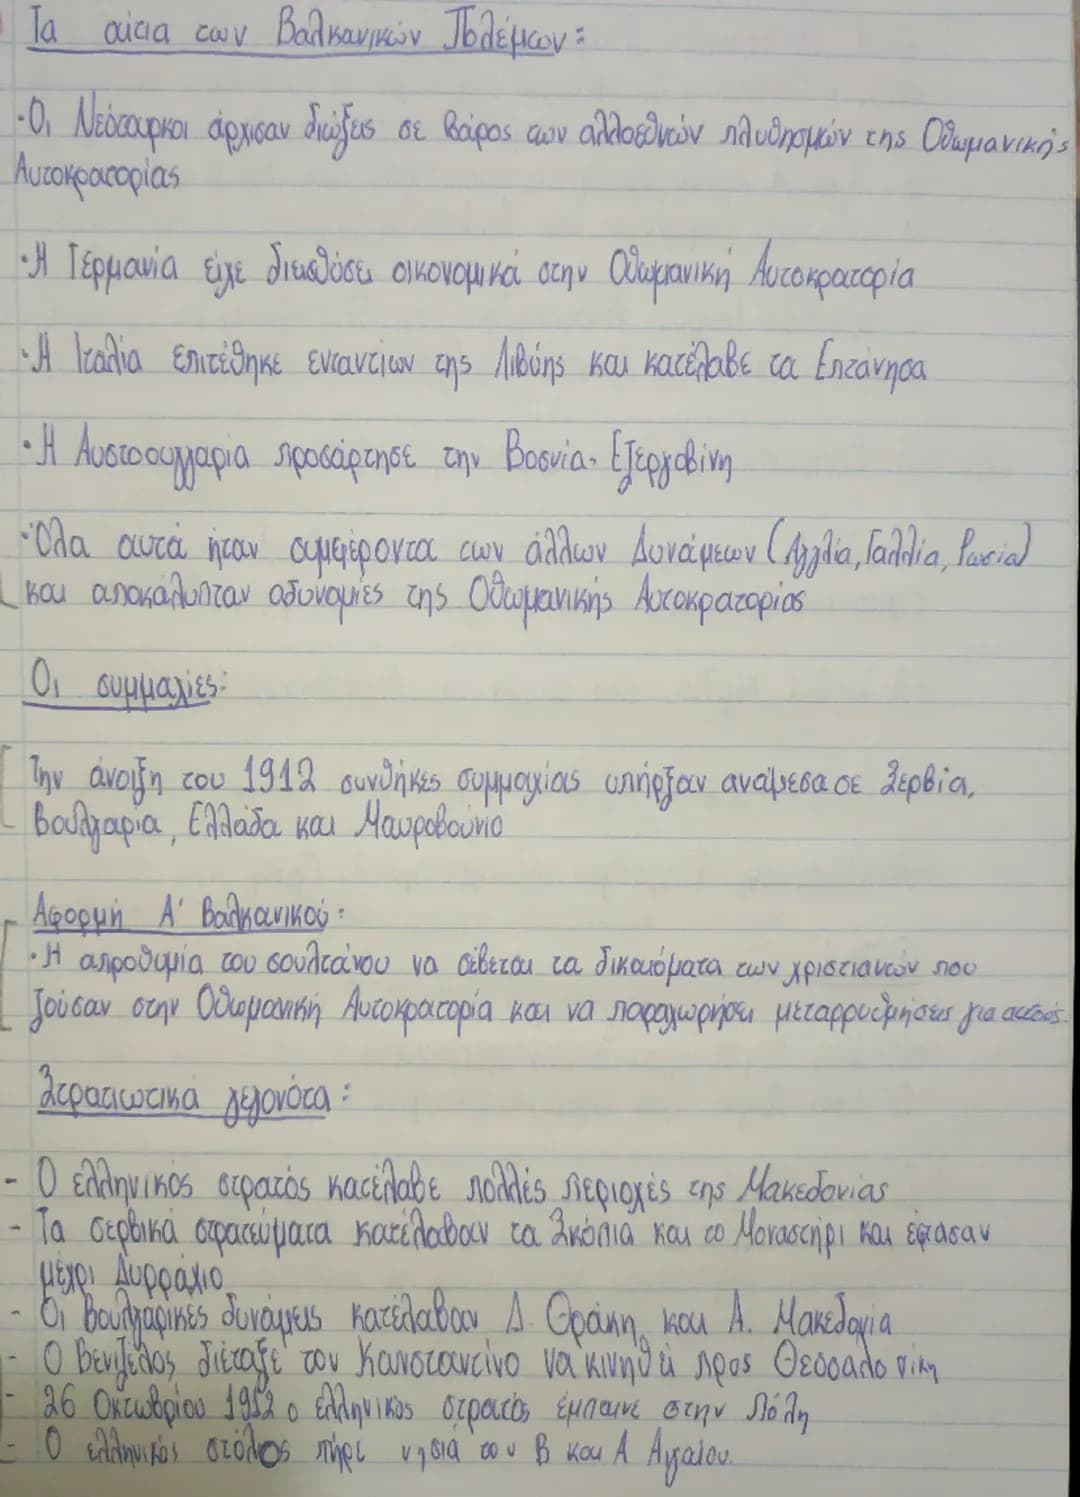 Τα αίτια των Βαλκανικών Πολέμων:
·Οι Νεότουρκοι άρχισαν διώξεις σε βάρος των αλλοεθνών πλυθησμών της Οθωμανικής
Αυτοκρατορίας
·Η Γερμανία είχε διεισδύσει οικονομικά στην Οθωμανική Αυτοκρατορία
·Η Ιταλία επιτέθηκε εναντίων της Λιβύης και κατέλαβε τα Επτάνησα
·Η Αυστροουγγαρία προσάρτησε την Βοσνία-Εζεργοβίνη
·Όλα αυτά ήταν συμφέροντα των άλλων Δυνάμεων (Αγγλία, Γαλλία, Ρωσία)
και αποκάλυπταν αδυναμίες της Οθωμανικής Αυτοκρατορίας
Οι συμμαχίες:
Την άνοιξη του 1912 συνθήκες συμμαχίας υπήρξαν ανάμεσα σε Σερβία,
Βουλγαρία, Ελλάδα και Μαυροβούνιο
Αφορμή Α' Βαλκανικού:
·Η απροθυμία του σουλτάνου να σέβεται τα δικαιόματα των χριστιανών που
ζούσαν στην Οθωμανική Αυτοκρατορία και να παραχωρήσει μεταρρυθμήσεις για αυτούς.
Στρατιωτικά γεγονότα:
- Ο ελληνικός στρατός κατέλαβε πολλές περιοχές της Μακεδονίας
- Τα σερβικά στρατεύματα κατέλαβαν τα Σκόπια και το Μοναστήρι και έφτασαν
μέχρι Δυρράχιο
- Οι Βουλγαρικές δυνάμεις κατέλαβαν Δ. Θράκη και Α. Μακεδονία
- Ο Βενιζέλος διέταξε τον Κωνσταντίνο να κινηθεί προς Θεσσαλονίκη
- 26 Οκτωβρίου 1912 ο ελληνικός στρατός έμπαινε στην Πόλη
- Ο ελληνικός στόλος πήρε νησιά του Β και Α Αιγαίου.